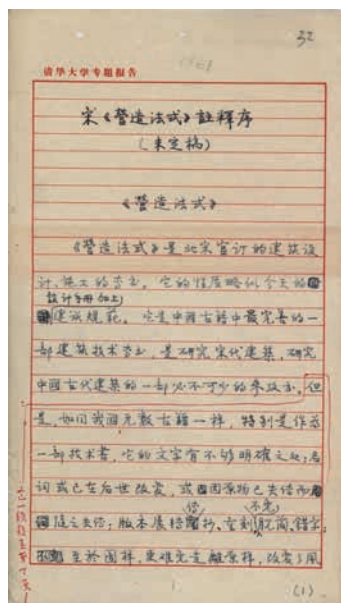 32
1961
清华大学专题报告
宋《营造法式》註釋序
(未定稿)
《营造法式》
《营造法式》是北宋官订的建筑设
计、施工的专书。它的性质略似今天的
設计手册加上
建筑规范。它是中國古籍中最完善的一
部建筑技术专书，是研究宋代建筑、研究
中國古代建筑的一部必不可少的参攷书。但
是，如同我國无数古籍一样，特别是作为
一部技术書，它的文字有不够明確之处；名
词或已在后世改変，或因原物已失传而
随之失传；版本展转传抄、重刻，不免脱简、错字
至於图样，更难免走離原样，改变了風
(1)